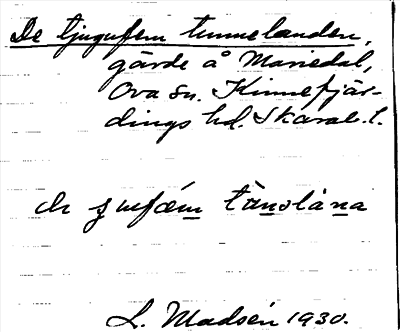 De tjugufem tunnelanden,
gärde å Mariedal,
Ova sn. Kinnefjär-
dings hd. Skarab. l.
L. Madsén 1930.